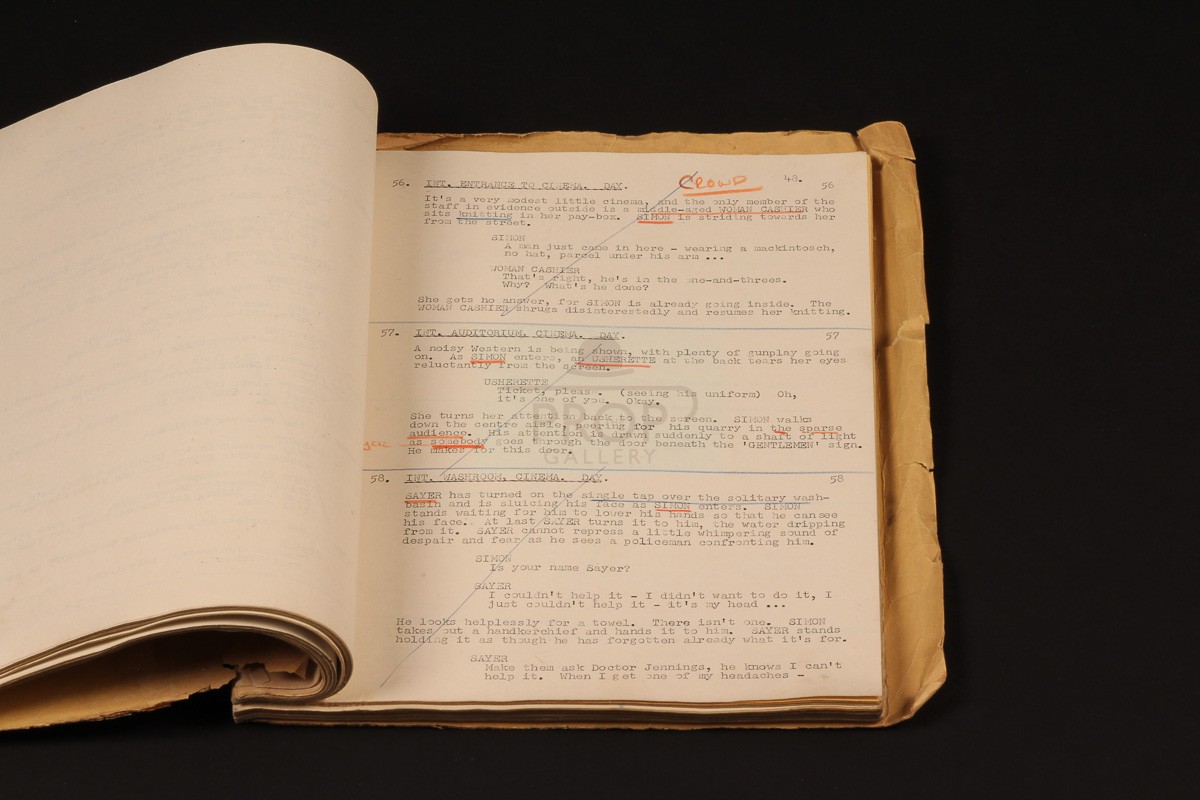 CROWD
48.
56. INT. ENTRANCE TO CINEMA. DAY. 56
It's a very modest little cinema, and the only member of the
staff in evidence outside is a middle-aged WOMAN CASHIER who
sits knitting in her pay-box. SIMON is striding towards her
from the street.
SIMON
A man just came in here - wearing a mackintosch,
no hat, parcel under his arm ...
WOMAN CASHIER
That's right, he's in the one-and-threes.
Why? What's he done?
She gets no answer, for SIMON is already going inside. The
WOMAN CASHIER shrugs disinterestedly and resumes her knitting.
57. INT. AUDITORIUM. CINEMA. DAY. 57
A noisy Western is being shown, with plenty of gunplay going
on. As SIMON enters, an USHERETTE at the back tears her eyes
reluctantly from the screen.
USHERETTE
Ticket, please. (seeing his uniform) Oh,
it's one of you. Okay.
She turns her attention back to the screen. SIMON walks
down the centre aisle, peering for his quarry in the sparse
audience. His attention is drawn suddenly to a shaft of light
as somebody goes through the door beneath the 'GENTLEMEN' sign.
He makes for this door.
PROP
GALLERY
58. INT. WASHROOM, CINEMA. DAY. 58
SAYER has turned on the single tap over the solitary wash-
basin and is sluicing his face as SIMON enters. SIMON
stands waiting for him to lower his hands so that he cansee
his face. At last SAYER turns it to him, the water dripping
from it. SAYER cannot repress a little whimpering sound of
despair and fear as he sees a policeman confronting him.
SIMON
Is your name Sayer?
SAYER
I couldn't help it - I didn't want to do it, I
just couldn't help it - it's my head ...
He looks helplessly for a towel. There isn't one. SIMON
takes out a handkerchief and hands it to him. SAYER stands
holding it as though he has forgotten already what it's for.
SAYER
Make them ask Doctor Jennings, he knows I can't
help it. When I get one of my headaches -